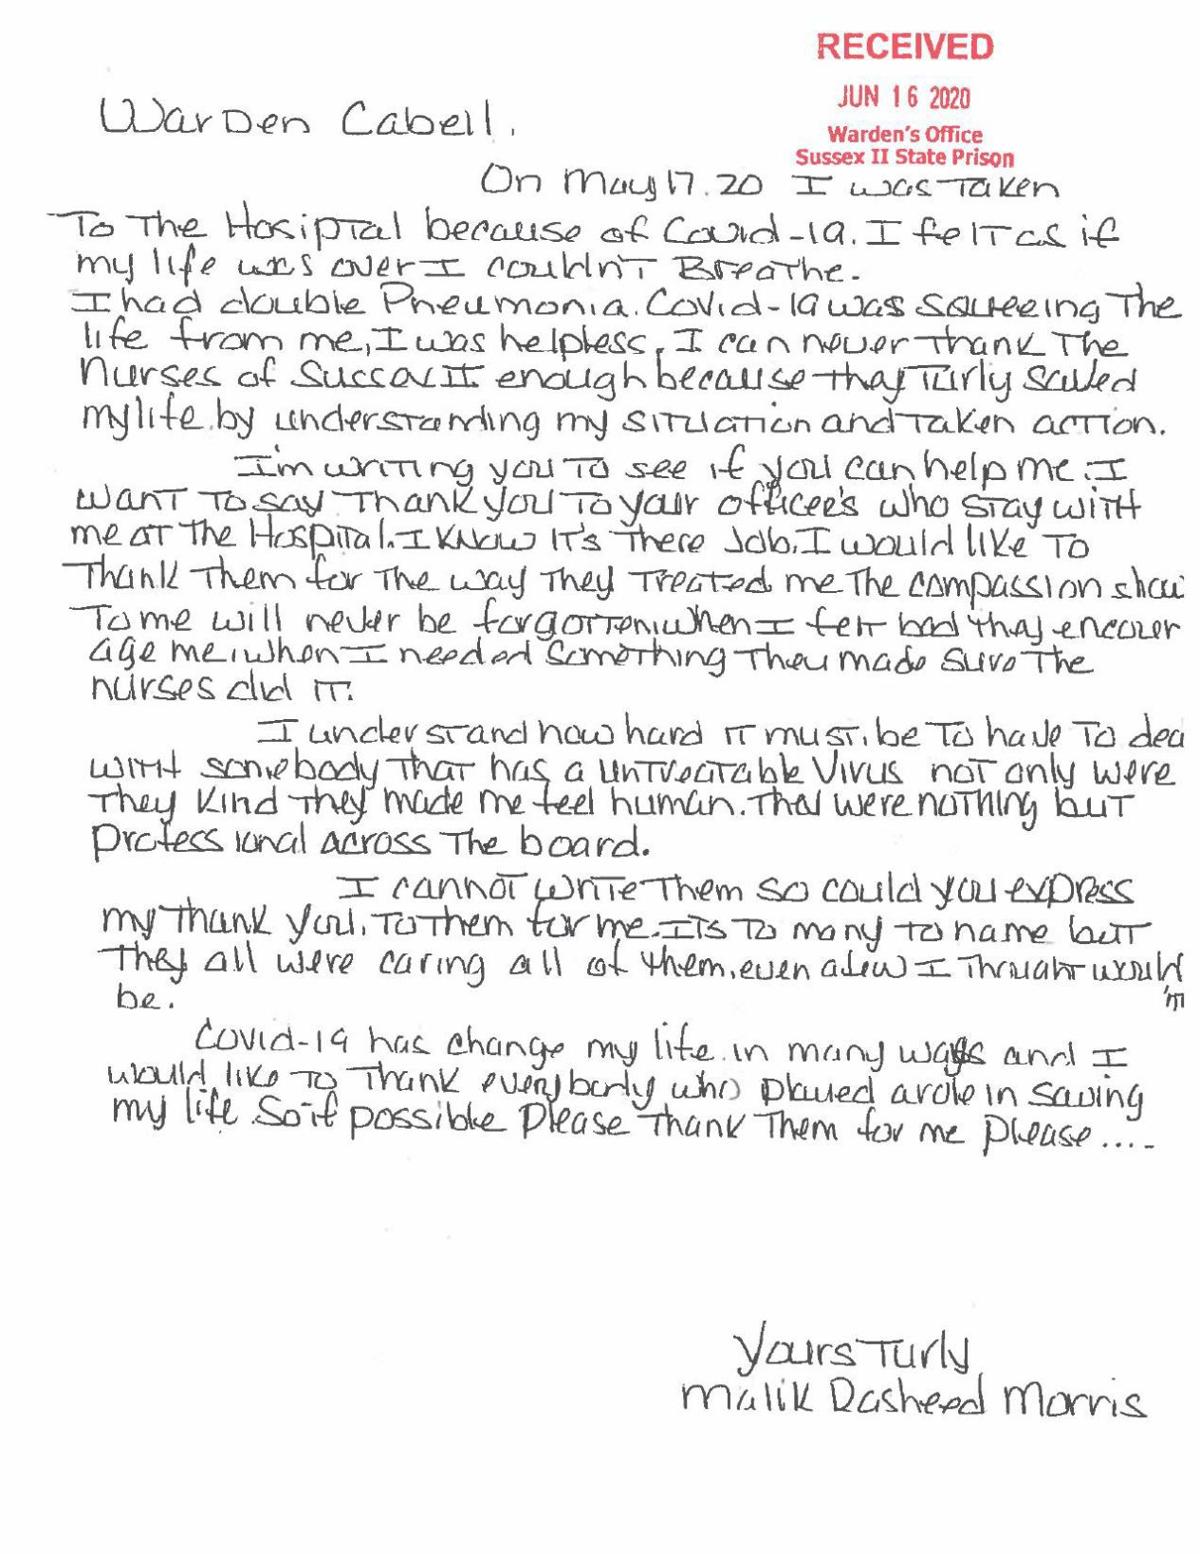 RECEIVED
JUN 16 2020
Warden's Office
Sussex II State Prison
Warden Cabell.
On May 17.20 I was Taken
To The Hosiptal because of Covid-19. I felt as if
my life was over I couldn't Breathe.
I had double Pneumonia. Covid-19 was squeeing The
life from me, I was helpless, I can never Thank The
Nurses of II enough because they Turly saved
my life by understanding my situation and Taken action.
I'm writing you To see if you can help me. I
want To say Thank you To your officee's who stay with
me at The Hospital. I know it's There Job. I would like To
Thank Them for The way They Treated me The compassion show
To me will never be forgotten, when I felt bad they encour
age me, when I needed something They made sure The
nurses did it.
I understand how hard it must be To have To deal
with somebody That has a untreatable Virus not only were
They kind They made me feel human. They were nothing but
Professional across The board.
I cannot write Them so could you express
my Thank you. To Them for me. It's To many to name but
They all were caring all of them, even a few I Thought would
be. n't
Covid-19 has change my life in many ways and I
would like To Thank everybody who played a role in saving
my life. So if possible Please Thank Them for me please....
Yours Turly
Malik Rasheed Morris